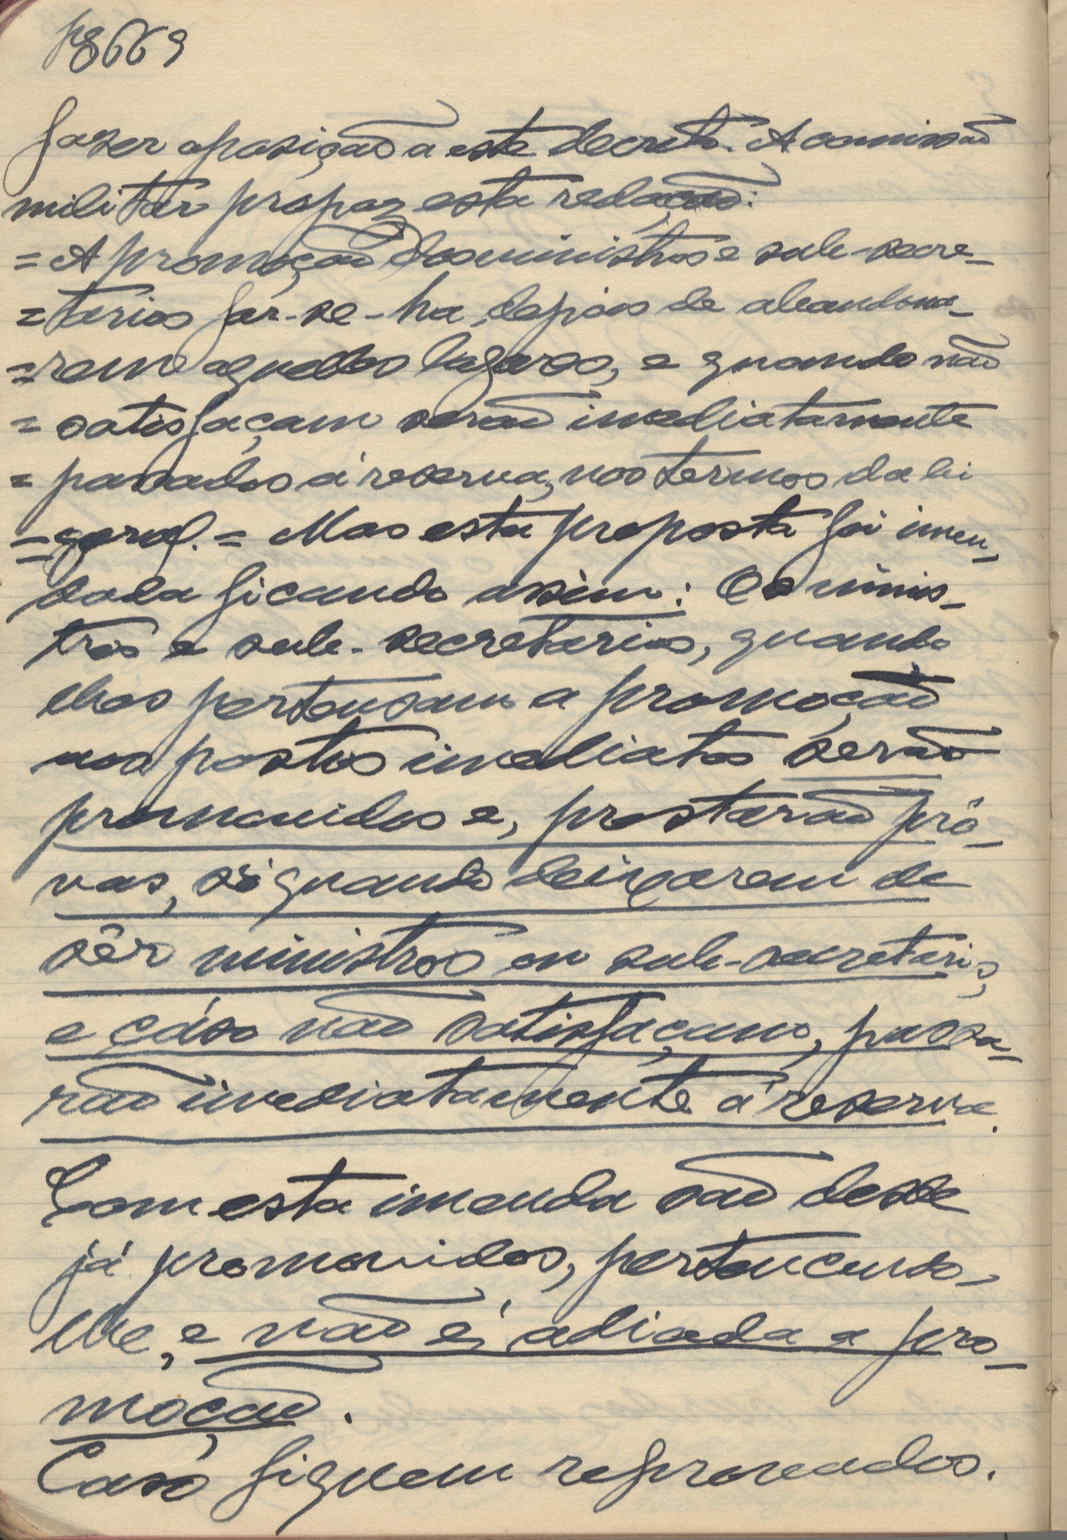 fazer oposição a este decreto. A comissão
militar propoz esta redação:
= A promoção dos ministros e sub-secre-
= tarios far-se-ha, depois de abandona-
= rem aquelles lugares, e quando não
= satisfaçam serão imediatamente
= passados á reserva, nos termos da lei
= geral. = Mas esta proposta foi imen-
dada ficando assim: Os minis-
tros e sub-secretarios, quando
lhes pertensam a promoção
aos postos imediatos serão
promovidos e, prestarão pró-
vas, só quando deixarem de
sêr ministros ou sub-secretarios,
e cáso não satisfaçam, passa-
rão imediatamente á reserva.
Com esta imenda são desde
já promovidos, pertencendo-
lhe, e não é adiada a pro-
moção.
Caso fiquem reprovados.